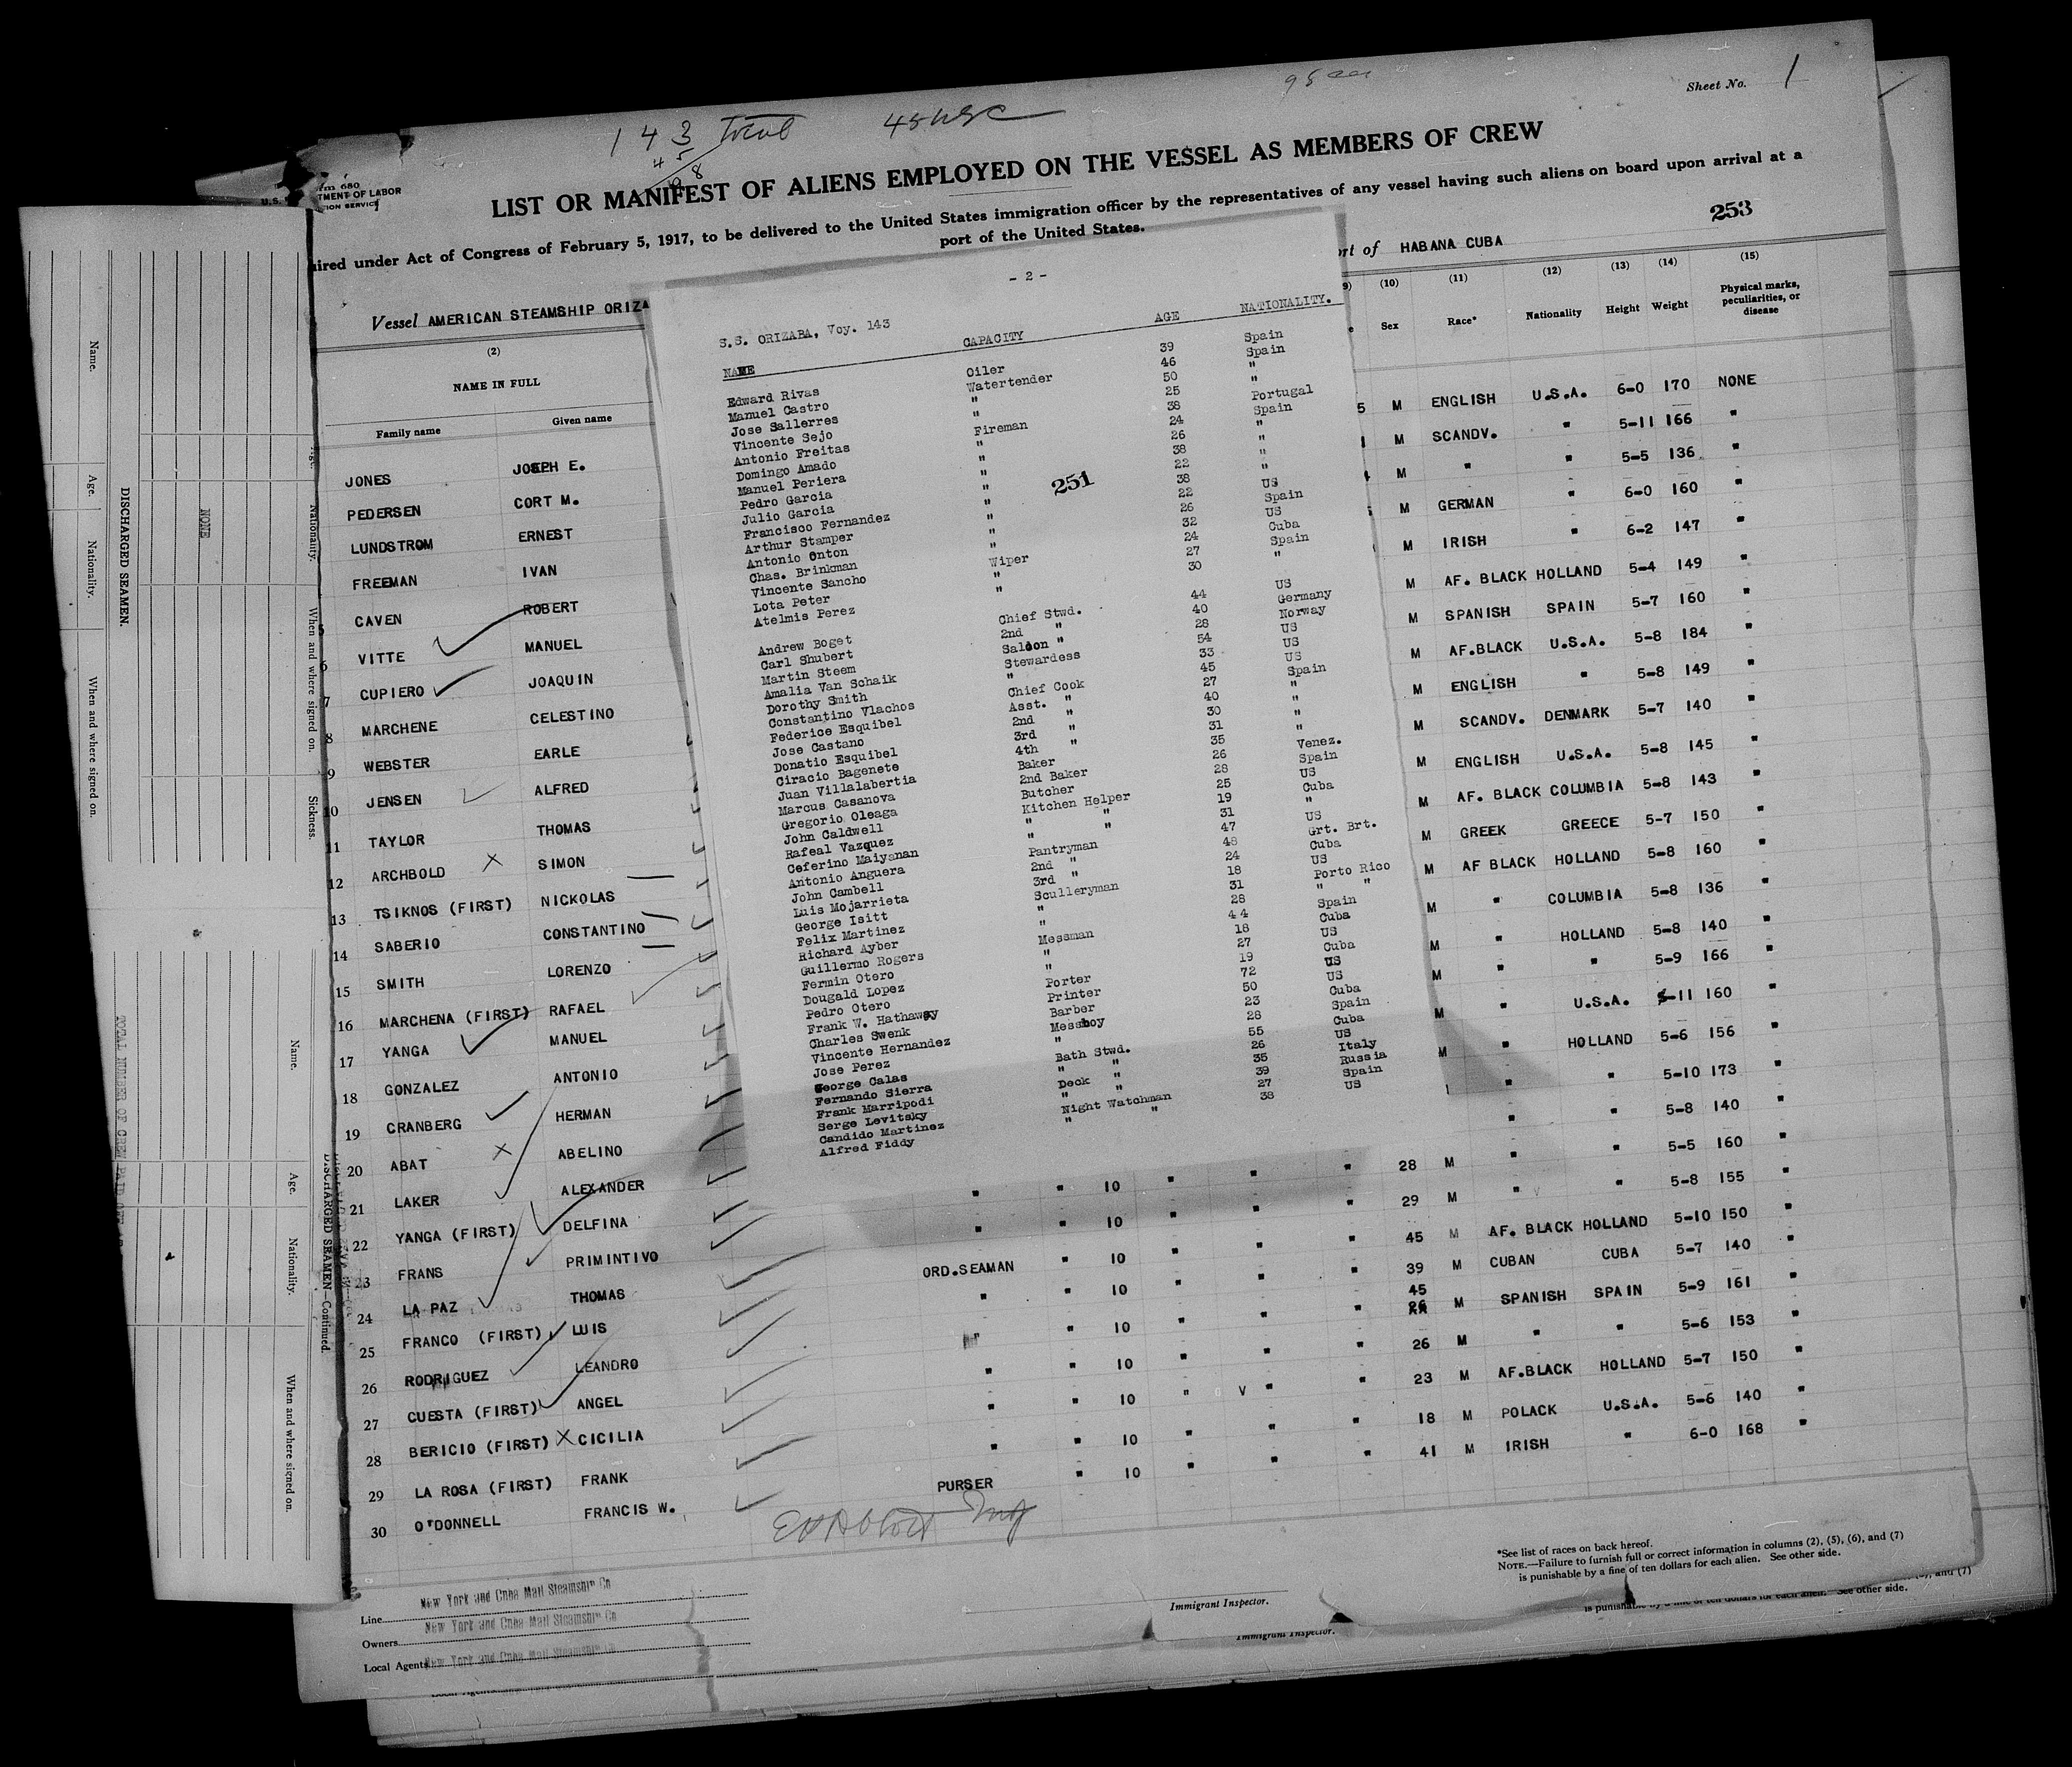 143 Total 45 USC
45
98
98
Sheet No. 1
U.S. DEPARTMENT OF LABOR
LIST OR MANIFEST OF ALIENS EMPLOYED ON THE VESSEL AS MEMBERS OF CREW
uired under Act of Congress of February 5, 1917, to be delivered to the United States immigration officer by the representatives of any vessel having such aliens on board upon arrival at a
port of the United States.
253
Vessel AMERICAN STEAMSHIP ORIZA
ort of HABANA CUBA
(2) (10) (11) (12) (13) (14) (15)
NAME IN FULL Sex Race* Nationality Height Weight Physical marks, peculiarities, or disease
Family name Given name
JONES JOSEPH E. 5 M ENGLISH U.S.A. 6-0 170 NONE
PEDERSEN CORT M. M SCANDV. " 5-11 166 "
LUNDSTROM ERNEST M " " 5-5 136 "
FREEMAN IVAN M GERMAN " 6-0 160 "
5 CAVEN ROBERT M IRISH " 6-2 147 "
6 VITTE MANUEL M AF. BLACK HOLLAND 5-4 149 "
7 CUPIERO JOAQUIN M SPANISH SPAIN 5-7 160 "
8 MARCHENE CELESTINO M AF.BLACK U.S.A. 5-8 184 "
9 WEBSTER EARLE M ENGLISH " 5-8 149 "
10 JENSEN ALFRED M SCANDV. DENMARK 5-7 140 "
11 TAYLOR THOMAS M ENGLISH U.S.A. 5-8 145 "
12 ARCHBOLD SIMON M AF. BLACK COLUMBIA 5-8 143 "
13 TSIKNOS (FIRST) NICKOLAS M GREEK GREECE 5-7 150 "
14 SABERIO CONSTANTINO M AF BLACK HOLLAND 5-8 160 "
15 SMITH LORENZO M " COLUMBIA 5-8 136 "
16 MARCHENA (FIRST) RAFAEL M " HOLLAND 5-8 140 "
17 YANGA MANUEL M " " 5-9 166 "
18 GONZALEZ ANTONIO M " U.S.A. 5-11 160 "
19 CRANBERG HERMAN M " HOLLAND 5-6 156 "
20 ABAT ABELINO " " 5-10 173 "
21 LAKER ALEXANDER " " 5-8 140 "
22 YANGA (FIRST) DELFINA " " 10 " " " 28 M " " 5-5 160 "
23 FRANS PRIMINTIVO " " 10 " " " 29 M " " 5-8 155 "
24 LA PAZ THOMAS ORD.SEAMAN " 10 " " " 45 M AF. BLACK HOLLAND 5-10 150 "
25 FRANCO (FIRST) LUIS " " 10 " " " 39 M CUBAN CUBA 5-7 140 "
26 RODRIGUEZ LEANDRO " " 10 " " " 45 M SPANISH SPAIN 5-9 161 "
27 CUESTA (FIRST) ANGEL " " 10 " " " 26 M " " 5-6 153 "
28 BERICIO (FIRST) CICILIA " " 10 " " " 23 M AF.BLACK HOLLAND 5-7 150 "
29 LA ROSA (FIRST) FRANK " " 10 " " " 18 M POLACK U.S.A. 5-6 140 "
30 O'DONNELL FRANCIS W. PURSER " 10 " " " 41 M IRISH " 6-0 168 "
Line New York and Cuba Mail Steamship Co
Owners New York and Cuba Mail Steamship Co
Local Agents New York and Cuba Mail Steamship Co
Immigrant Inspector.
Immigrant Inspector.
*See list of races on back hereof.
NOTE.—Failure to furnish full or correct information in columns (2), (5), (6), and (7)
is punishable by a fine of ten dollars for each alien. See other side.
and (7)
is punishable by a fine of ten dollars for each alien. See other side.
- 2 -
S.S. ORIZABA, Voy. 143
NAME CAPACITY AGE NATIONALITY.
Edward Rivas Oiler 39 Spain
Manuel Castro Watertender 46 Spain
Jose Sallerres " 50 "
Vincente Sejo " 25 "
Antonio Freitas Fireman 38 Portugal
Domingo Amado " 24 Spain
Manuel Periera " 26 "
Pedro Garcia " 38 "
Julio Garcia " 22 "
Francisco Fernandez " 38 "
Arthur Stamper " 22 US
Antonio Onton " 26 Spain
Chas. Brinkman " 32 US
Vincente Sancho " 24 Cuba
Lota Peter Wiper 27 Spain
Atelmis Perez " 30 "
251
Andrew Boget Chief Stwd. 44 US
Carl Shubert 2nd " 40 Germany
Martin Steem Saloon " 28 Norway
Amalia Van Schaik Stewardess 54 US
Dorothy Smith " 33 US
Constantino Vlachos Chief Cook 45 US
Federice Esquibel Asst. " 27 Spain
Jose Castano 2nd " 40 "
Donatio Esquibel 3rd " 30 "
Ciracio Bagenete 4th " 31 "
Juan Villalabertia Baker 35 "
Marcus Casanova 2nd Baker 26 Venez.
Gregorio Oleaga Butcher 28 Spain
John Caldwell Kitchen Helper 25 US
Rafeal Vazquez " " 19 Cuba
Ceferino Maiyanan " " 31 "
Antonio Anguera Pantryman 47 US
John Cambell 2nd " 48 Grt. Brt.
Luis Mojarrieta 3rd " 24 Cuba
George Isitt Sculleryman 18 US
Felix Martinez " 31 Porto Rico
Richard Ayber " 28 " "
Guillermo Rogers Messman 44 Spain
Fermin Otero " 18 Cuba
Dougald Lopez " 27 US
Pedro Otero Porter 19 Cuba
Frank W. Hathaway Printer 72 US
Charles Swenk Barber 50 US
Vincente Hernandez Messboy 23 Cuba
Jose Perez " 28 Spain
George Calas Bath Stwd. 55 Cuba
Fernando Sierra " " 26 US
Frank Marripodi Deck " 35 Italy
Serge Levitsky " " 39 Russia
Candido Martinez Night Watchman 27 Spain
Alfred Fiddy " " 38 US
DISCHARGED SEAMEN.
Name. Age. Nationality. When and where signed on.
NONE
Nationality. When and where signed on. Sickness.
DISCHARGED SEAMEN—Continued.
Name. Age. Nationality. When and where signed on.
TOTAL NUMBER OF CREW PAID OFF